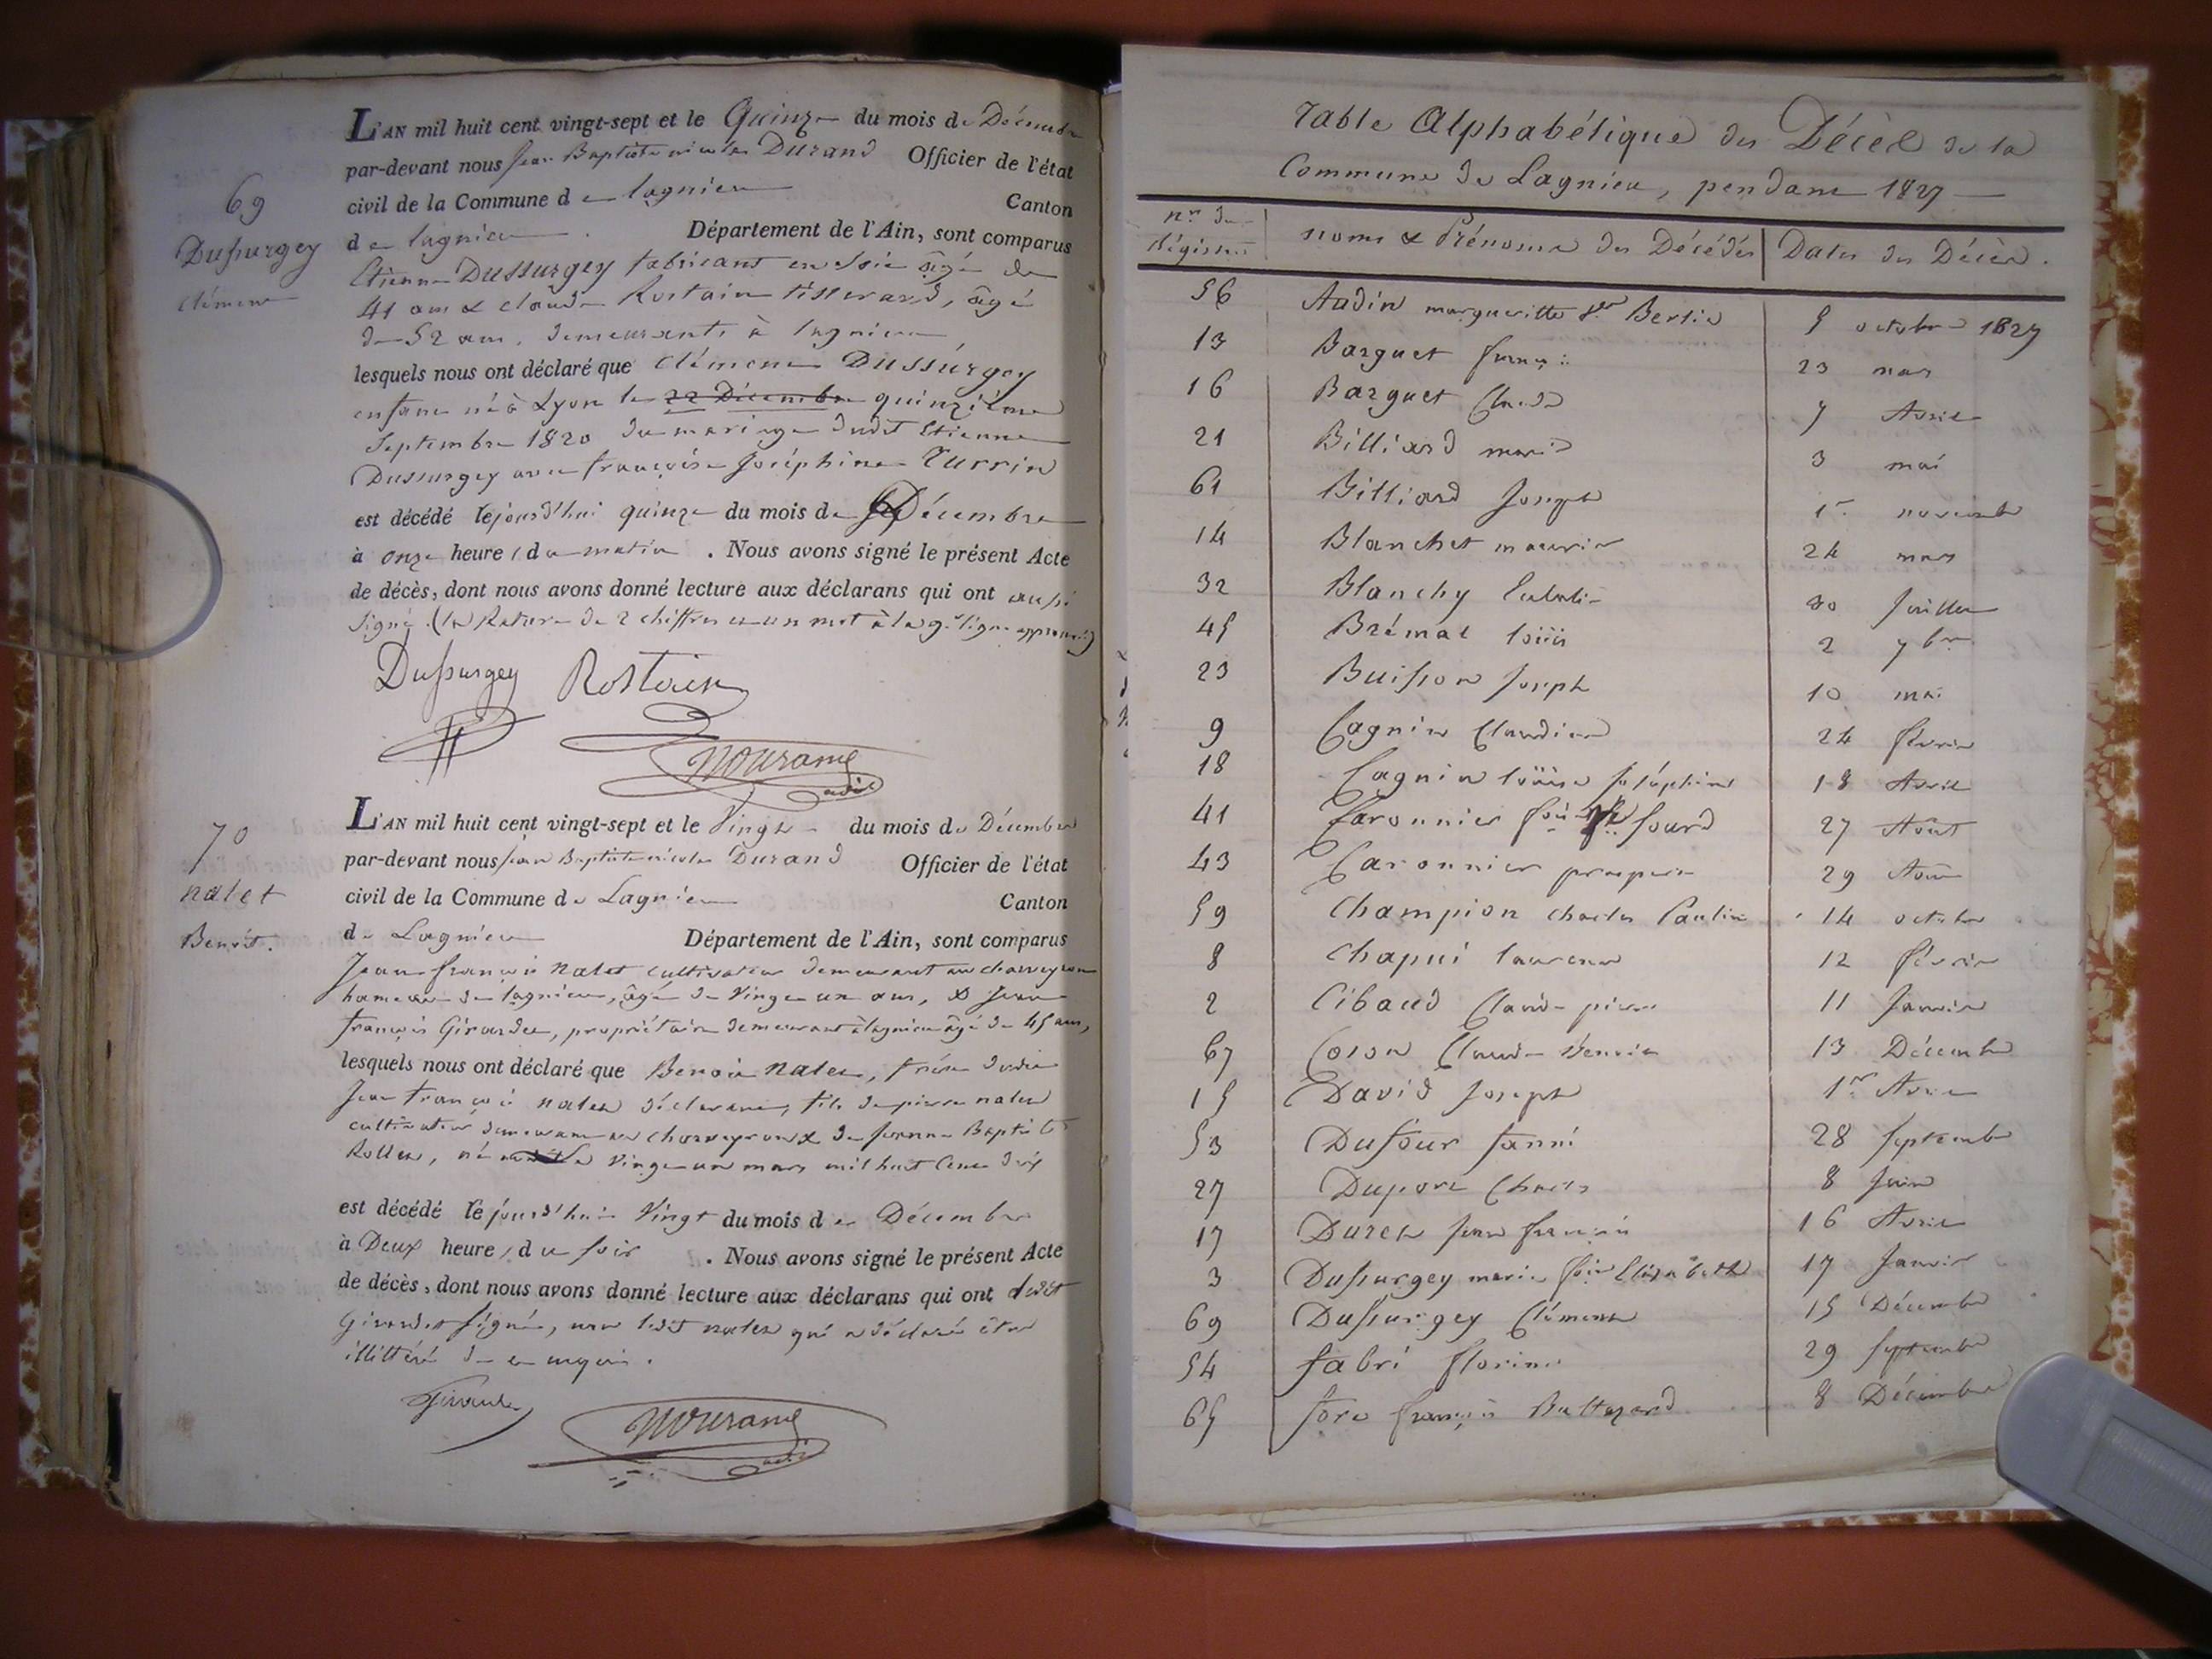 69
Dussurgey
Clément
L'AN mil huit cent vingt-sept et le Quinze du mois de Décembre
par-devant nous Jean Baptiste nicolas Durand Officier de l'état
civil de la Commune de lagnieu Canton
de lagnieu. Département de l'Ain, sont comparus
Etienne Dussurgey fabricant en soie âgé de
41 ans & claude Rostain tisserand, âgé
de 52 ans, demeurants à lagnieu
lesquels nous ont déclaré que Clément Dussurgey
enfant né à Lyon le 22 Décembre quinzième
Septembre 1820 du mariage dudit Etienne
Dussurgey avec françoise Joséphine Turrin
est décédé lejourd'hui quinze du mois de Décembre
à onze heures du matin. Nous avons signé le présent Acte
de décès, dont nous avons donné lecture aux déclarans qui ont aussi
signé. (la Rature de 2 chiffres et un mot à la 9e ligne approuvée)
Dussurgey Rostain
70
nalet
Benoit.
L'AN mil huit cent vingt-sept et le Vingt du mois de Décembre
par-devant nous Jean Baptiste nicolas Durand Officier de l'état
civil de la Commune de Lagnieu Canton
de Lagnieu Département de l'Ain, sont comparus
Jean françois Nalet cultivateur demeurant au charveyron
hameau de lagnieu, âgé de Vingt un ans, & Jean
françois Girardet, propriétaire demeurant à lagnieu âgé de 45 ans,
lesquels nous ont déclaré que Benoit Nalet, frère dudit
Jean françois nalet déclarant, fils de pierre nalet
cultivateur demeurant au Charveyron & de Jeanne Baptiste
Rollet, né le Vingt un mars mil huit Cent dix
est décédé lejourd'hui Vingt du mois de Décembre
à Deux heures du soir. Nous avons signé le présent Acte
de décès, dont nous avons donné lecture aux déclarans qui ont ledit
Girardet signé, non ledit nalet qui a déclaré être
illittéré de ce enquis.
Girardet
Table Alphabétique des Décès de la
Commune de Lagnieu, pendant 1827
nos du Régistre noms & Prénoms des Décédés Dates des Décès.
56 Audin margueritte Ve Bertin 5 octobre 1827
13 Barguet françois 23 mars
16 Barguet Claude 7 Avril
21 Billiard marie 3 mai
61 Billiard Joseph 1er novembre
14 Blanchet maurice 24 mars
32 Blanchy Eulalie 30 Juillet
45 Brémal loüis 2 7bre
23 Buisson Joseph 10 mai
9 Cagnin Claudine 24 février
18 Cagnin loüise Joséphine 18 Avril
41 Caronnier sourd 27 Août
43 Caronnier prosper 29 Août
59 Champion charles Paulin 14 octobre
8 Chapui laurent 12 février
2 Cibaud Claude pierre 11 Janvier
67 Coson Claude Benoit 13 Décembre
15 David Joseph 1er Avril
53 Dufour fanni 28 Septembre
27 Duport Charles 8 Juin
17 Duret Jean françois 16 Avril
3 Dussurgey marie foise Elizabeth 17 Janvier
69 Dussurgey Clément 15 Décembre
54 fabri florine 29 Septembre
65 fore françois Baltazard 8 Décembre